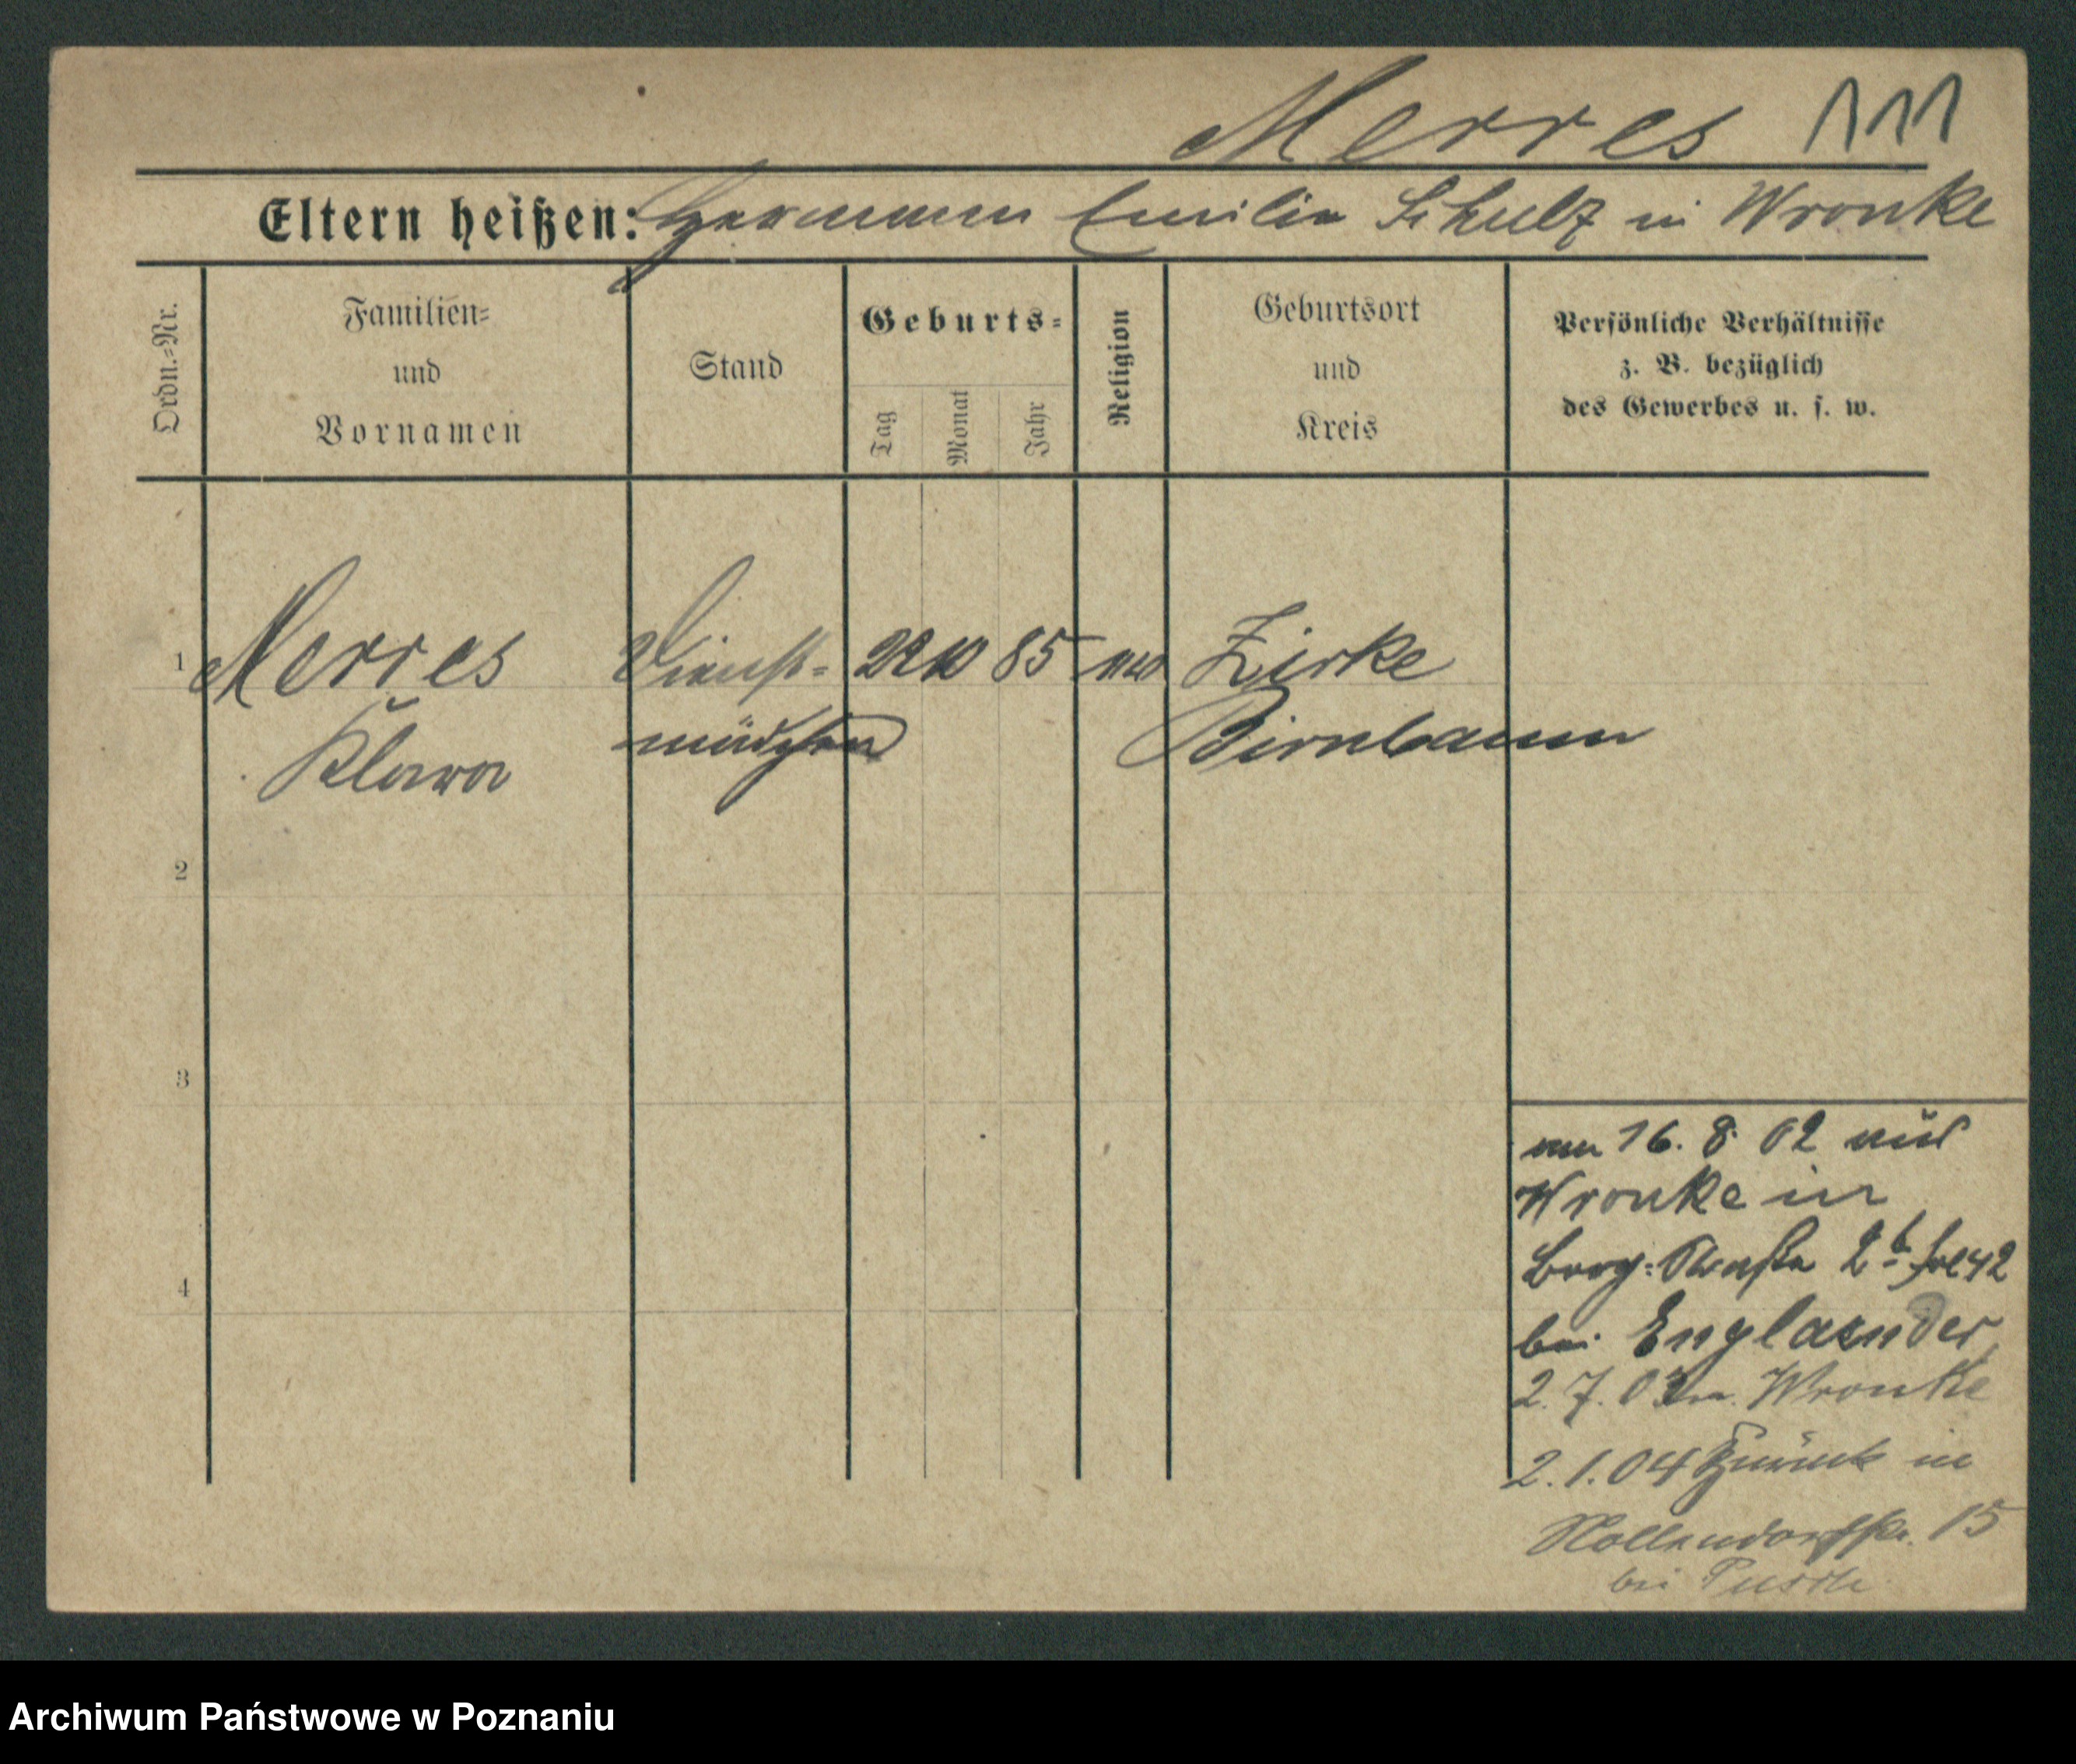 Merres 111
Eltern heißen: Hermann Emilie Schulz in Wronke
Ordn.-Nr.
Familien-
und
Vornamen
Stand
Geburts-
Tag
Monat
Jahr
Religion
Geburtsort
und
Kreis
Persönliche Verhältnisse
z. B. bezüglich
des Gewerbes u. s. w.
1 Merres Dienst- 22 10 85 Zirke
Klara mädchen Birnbaum
2
3
4
am 16. 8. 02 aus
Wronke in
Berg-Straße 2b
bei Englaender
2. 7. 03 Wronke
2. 1. 04 Zurück in
Nollendorfstr. 15
bei
Archiwum Państwowe w Poznaniu